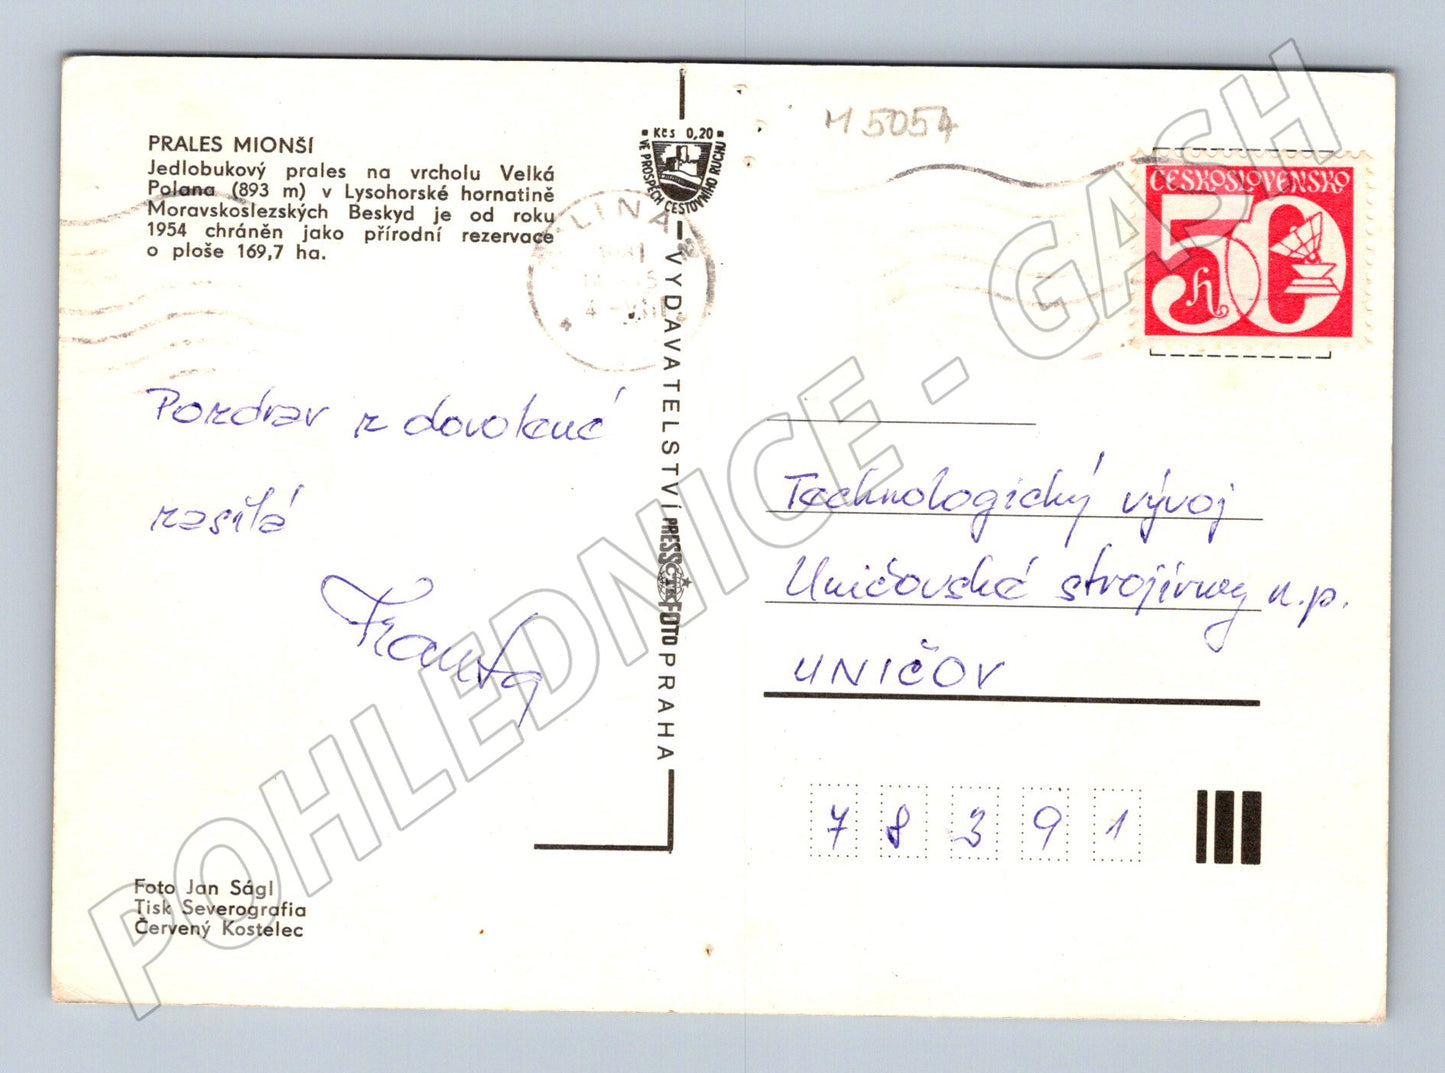 PRALES MIONŠÍ
Jedlobukový prales na vrcholu Velká
Polana (893 m) v Lysohorské hornatině
Moravskoslezských Beskyd je od roku
1954 chráněn jako přírodní rezervace
o ploše 169,7 ha.
Pozdrav z dovolené
zasílá
Franta
Foto Jan Ságl
Tisk Severografia
Červený Kostelec
Kčs 0,20
VE PROSPĚCH CESTOVNÍHO RUCHU
VYDAVATELSTVÍ PRESSFOTO PRAHA
ČTK
M 5054
ČESKOSLOVENSKO
50
h
Technologický vývoj
Uničovské strojírny n.p.
UNIČOV
78391
POHLEDNICE - GASH